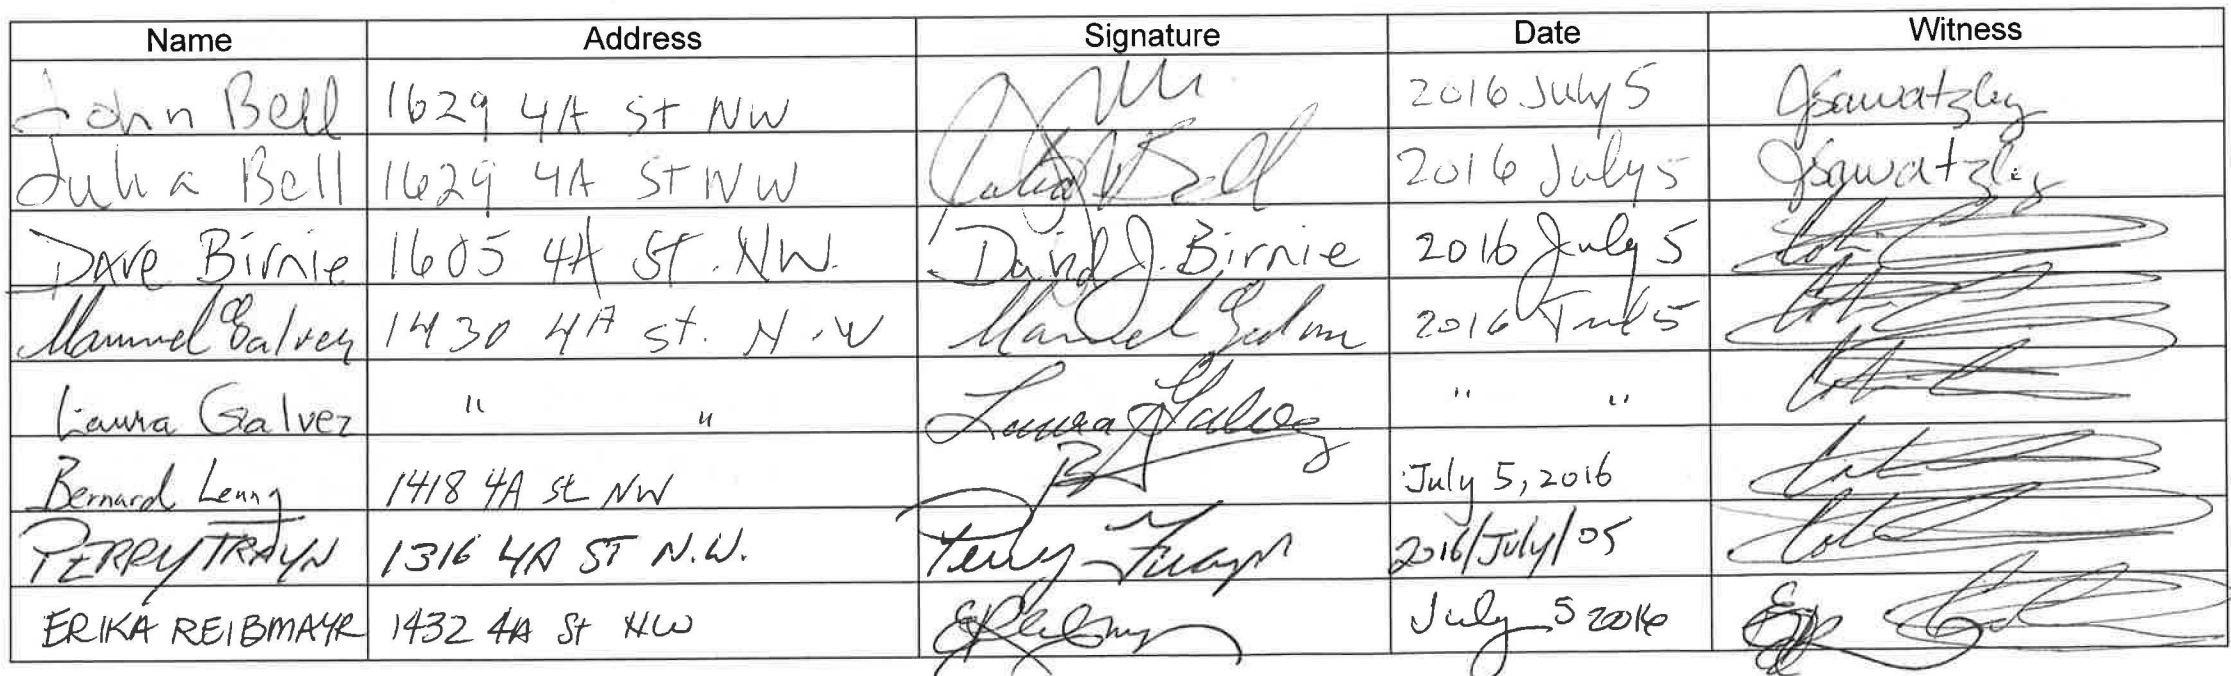 Name Address Signature Date Witness
John Bell 1629 4A St NW 2016 July 5 Jsawatzky
Julia Bell 1629 4A St NW Julia Bell 2016 July 5 Jsawatzky
Dave Birnie 1605 4A St. NW. David J. Birnie 2016 July 5
Manuel Galvez 1430 4A st. N.W Manuel 2016 5
Laura Galvez " " Laura Galvez " "
Bernard Leung 1418 4A St NW July 5, 2016
PERRY TRAYN 1316 4A ST N.W. Perry Trayn 2016/July/05
ERIKA REIBMAYR 1432 4A St NW July 5 2016